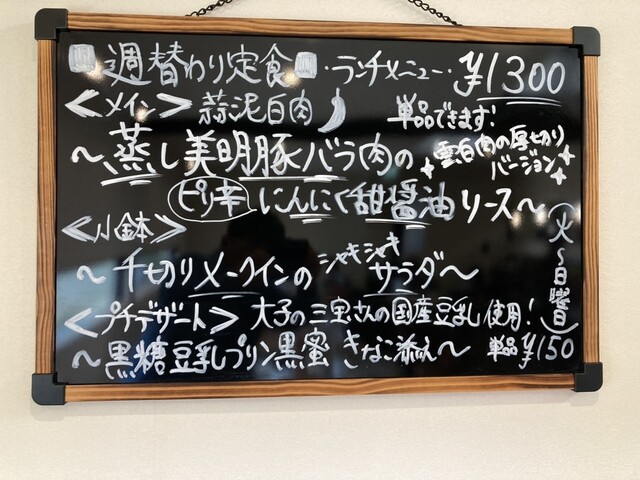 週替わり定食 ・ランチメニュー・ ¥1300
<メイン> 蒜泥白肉 単品できます!
～蒸し美明豚バラ肉の
雲白肉の厚切りバージョン
ピリ辛にんにく甜醤油ソース～
(火～日曜日)
<小鉢>
～千切りメークインのシャキシャキサラダ～
<プチデザート> 大子の三宝さんの国産豆乳使用!
～黒糖豆乳プリン黒蜜きなこ添え～ 単品¥150